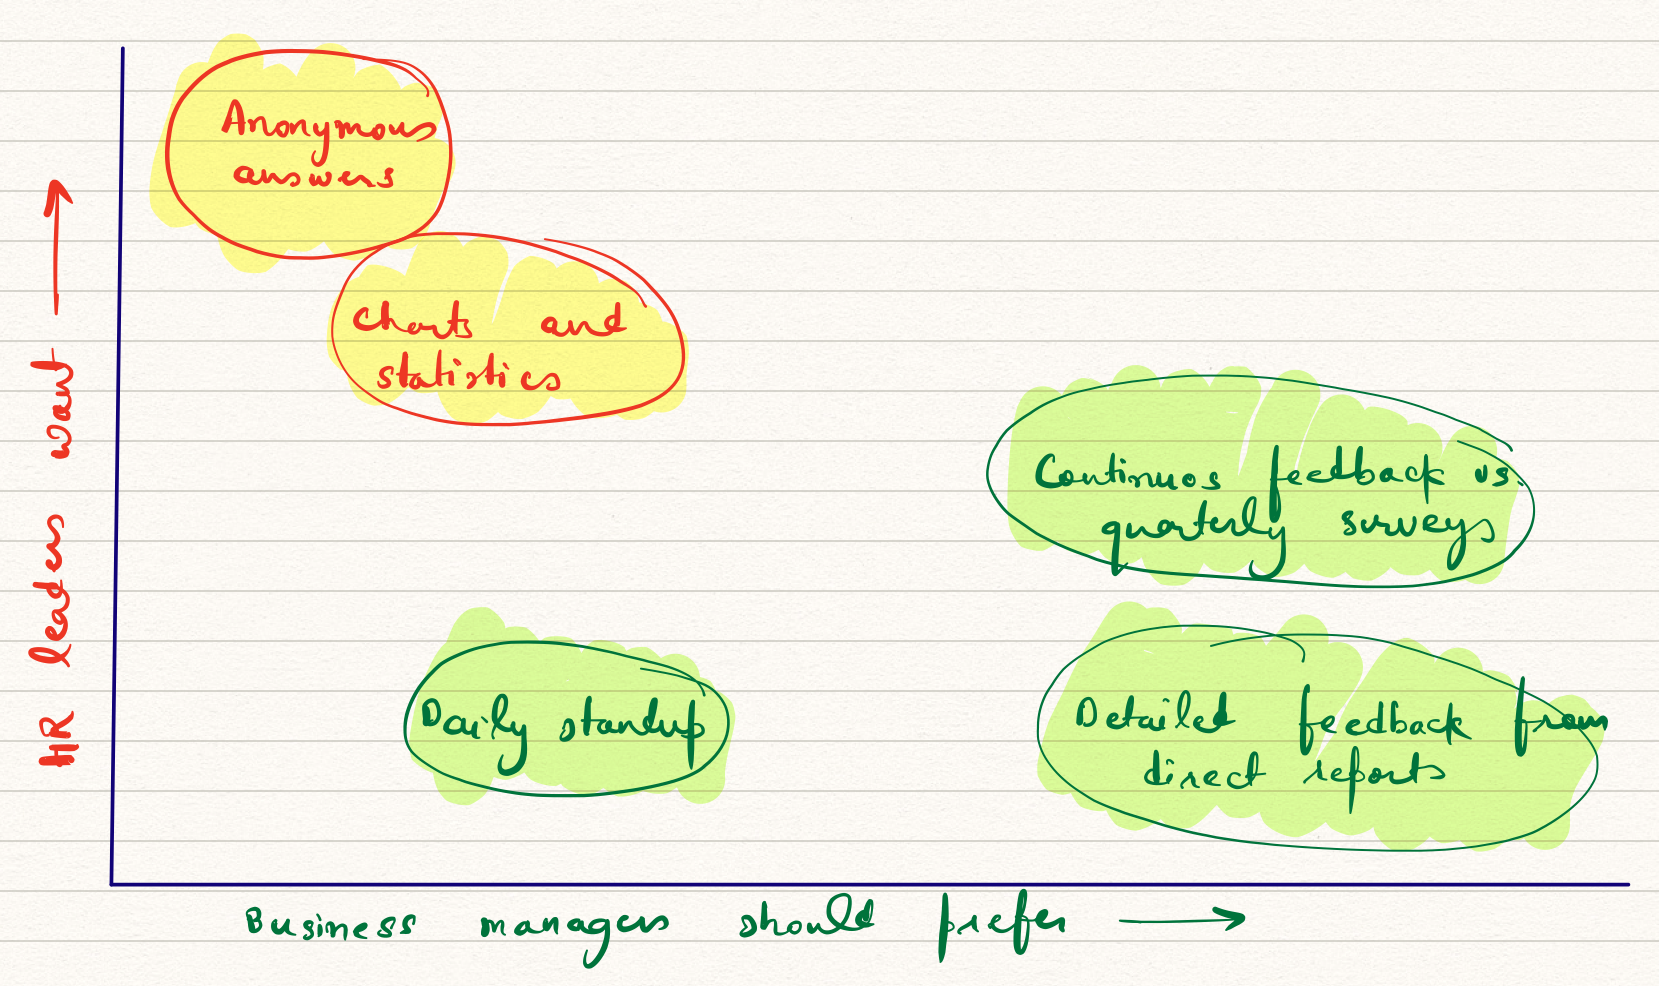 Anonymous
answers
Charts and
statistics
HR leaders want
Continuos feedback vs.
quarterly surveys
Daily standup
Detailed feedback from
direct reports
Business managers should prefer